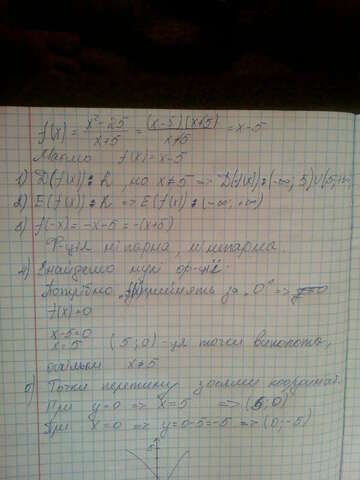 f(x) = x²-25 / x+5 = (x-5)(x+5) / x+5 = x-5
Маємо f(x) = x-5
1) D(f(x)): R, но x≠5 => D(f(x)): (-∞; 5)∪(5;+∞)
2) E(f(x)): R => E(f(x)): (-∞; +∞)
3) f(-x) = -x-5 = -(x+5)
Ф-ція ні парна, ні непарна.
4) Знайдемо нулі ф-ції:
Потрібно за "0" => y=0
f(x)=0
x-5=0
x=5 (5;0) -ця точка
оскільки x≠5
5) Точки перетину з осями координат.
При y=0 => x=5 => (5;0)
При x=0 => y=0-5=-5 => (0;-5)